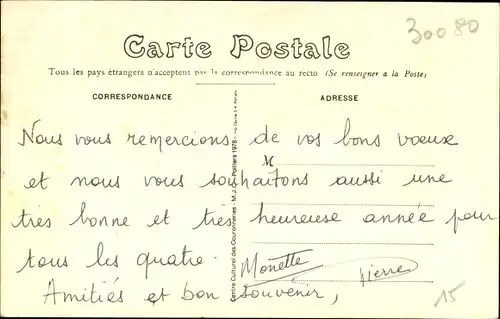 30080
Carte Postale
Tous les pays étrangers n'acceptent pas la correspondance au recto (Se renseigner a la Poste)
CORRESPONDANCE
ADRESSE
Nous vous remercions de vos bons vœux
M
et nous vous souhaitons aussi une
très bonne et très heureuse année pour
tous les quatre.
Monette
Pierre
Amitiés et bon souvenir,
15
Centre Culturel des Couronneries - M.J.C. - Poitiers 1978 -